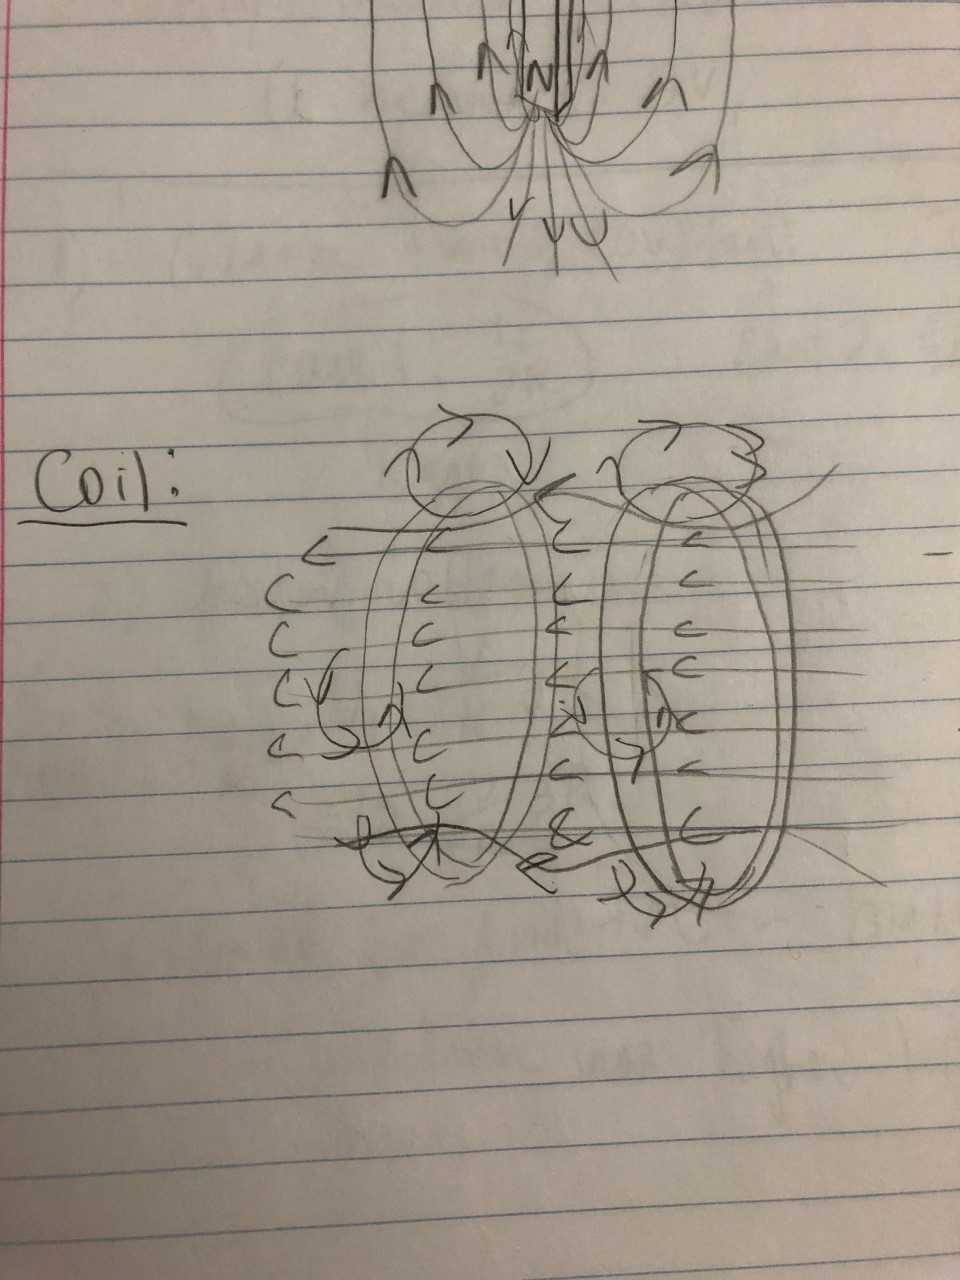 N
Coil: